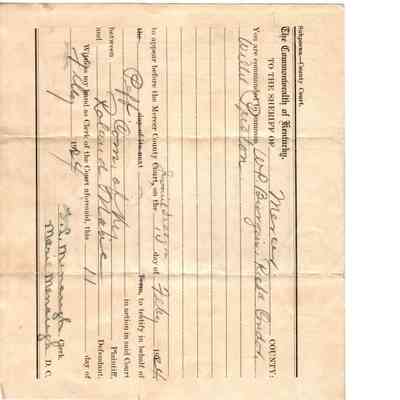 Subpoena—County Court.
The Commonwealth of Kentucky.
TO THE SHERIFF OF Mercer COUNTY:
You are commanded to summon W.P. Burgin,
Willie
to appear before the Mercer County Court, on the 14 day of Feby 1924
the day of its next Term, to testify in behalf of
Plff in action in said Court
between Com. of Ky Plaintiff,
and Defendant.
Witness my hand as Clerk of the Court aforesaid, this 11 day of
Feby 1924
Clerk
D. C.